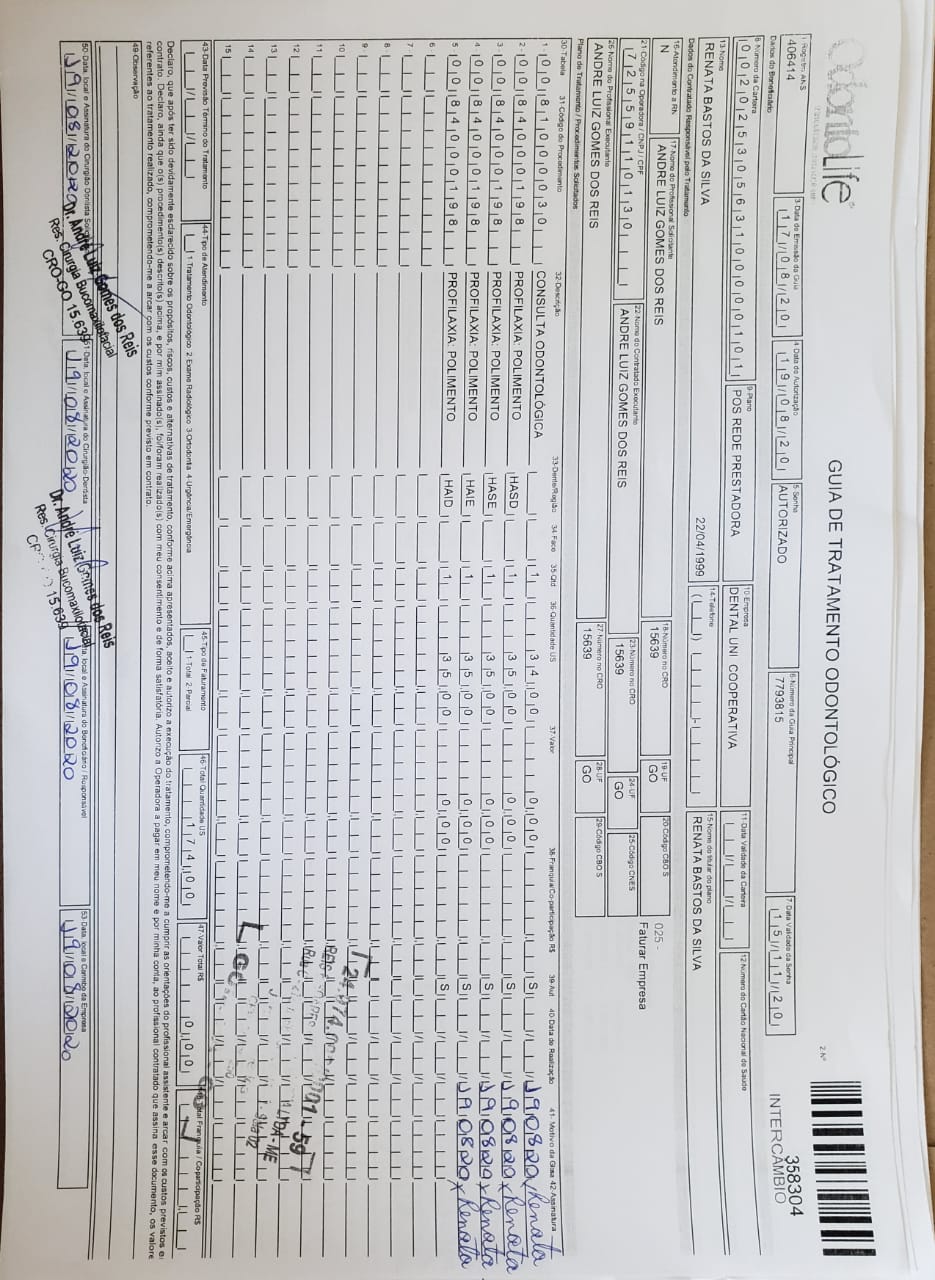 OdontoLife
GUIA DE TRATAMENTO ODONTOLÓGICO
2-Nº
358304
INTERCÂMBIO
1-Registro ANS
406414
3-Data de Emissão da Guia
17/08/20
4-Data de Autorização
19/08/20
5-Senha
AUTORIZADO
6-Número da Guia Principal
7793815
7-Data Validade da Senha
15/11/20
Dados do Beneficiário
8-Número da Carteira
00202530563100000101
9-Plano
POS REDE PRESTADORA
10-Empresa
DENTAL UNI COOPERATIVA
11-Data Validade da Carteira
12-Número do Cartão Nacional de Saúde
13-Nome
RENATA BASTOS DA SILVA
22/04/1999
14-Telefone
15-Nome do titular do plano
RENATA BASTOS DA SILVA
Dados do Contratado Responsável pelo Tratamento
16-Atendimento a RN
N
17-Nome do Profissional Solicitante
ANDRE LUIZ GOMES DOS REIS
18-Número no CRO
15639
19-UF
GO
20-Código CBO S
025 -
Faturar Empresa
21-Código na Operadora / CNPJ / CPF
72559110130
22-Nome do Contratado Executante
ANDRE LUIZ GOMES DOS REIS
23-Número no CRO
15639
24-UF
GO
25-Código CNES
26-Nome do Profissional Executante
ANDRE LUIZ GOMES DOS REIS
27-Número no CRO
15639
28-UF
GO
29-Código CBO S
Plano de Tratamento / Procedimentos Solicitados
30-Tabela 31-Código do Procedimento 32-Descrição 33-Dente/Região 34-Face 35-Qtd 36-Quantidade US 37-Valor 38-Franquia/Co-participação R$ 39-Aut 40-Data de Realização 41-Motivo da Glosa 42-Assinatura
1- 00 81000030 CONSULTA ODONTOLÓGICA 1 34,00 0,00 S 190820 x Renata
2- 00 84000198 PROFILAXIA: POLIMENTO HASD 1 35,00 0,00 S 190820 x Renata
3- 00 84000198 PROFILAXIA: POLIMENTO HASE 1 35,00 0,00 S 190820 x Renata
4- 00 84000198 PROFILAXIA: POLIMENTO HAIE 1 35,00 0,00 S 190820 x Renata
5- 00 84000198 PROFILAXIA: POLIMENTO HAID 1 35,00 0,00 S 190820 x Renata
6
7
8
9
10
11
12
13
14
15
43-Data Previsão Término do Tratamento
44-Tipo de Atendimento
1-Tratamento Odontológico 2-Exame Radiológico 3-Ortodontia 4-Urgência/Emergência
45-Tipo de Faturamento
1-Total 2-Parcial
46-Total Quantidade US
174,00
47-Valor Total R$
0,00
Total Franquia / Co-participação R$
Declaro, que após ter sido devidamente esclarecido sobre os propósitos, riscos, custos e alternativas de tratamento, conforme acima apresentados, aceito e autorizo a execução do tratamento, comprometendo-me a cumprir as orientações do profissional assistente e arcar com os custos previstos em
contrato. Declaro, ainda que o(s) procedimento(s) descrito(s) acima, e por mim assinado(s), foi/foram realizado(s) com meu consentimento e de forma satisfatória. Autorizo a Operadora a pagar em meu nome e por minha conta, ao profissional contratado que assina esse documento, os valores
referentes ao tratamento realizado, comprometendo-me a arcar com os custos conforme previsto em contrato.
49-Observação
50-Data, local e Assinatura do Cirurgião Dentista
19/08/2020
Dr. André Luiz Gomes dos Reis
Res. Cirurgia Bucomaxilofacial
CRO-GO 15.639
51-Data, local e Assinatura do Cirurgião-Dentista
19/08/2020
Dr. André Luiz Gomes dos Reis
Res. Cirurgia Bucomaxilofacial
15.639
local e Assinatura do Beneficiário / Responsável
19/08/2020
53-Data, local e Carimbo da Empresa
19/08/2020